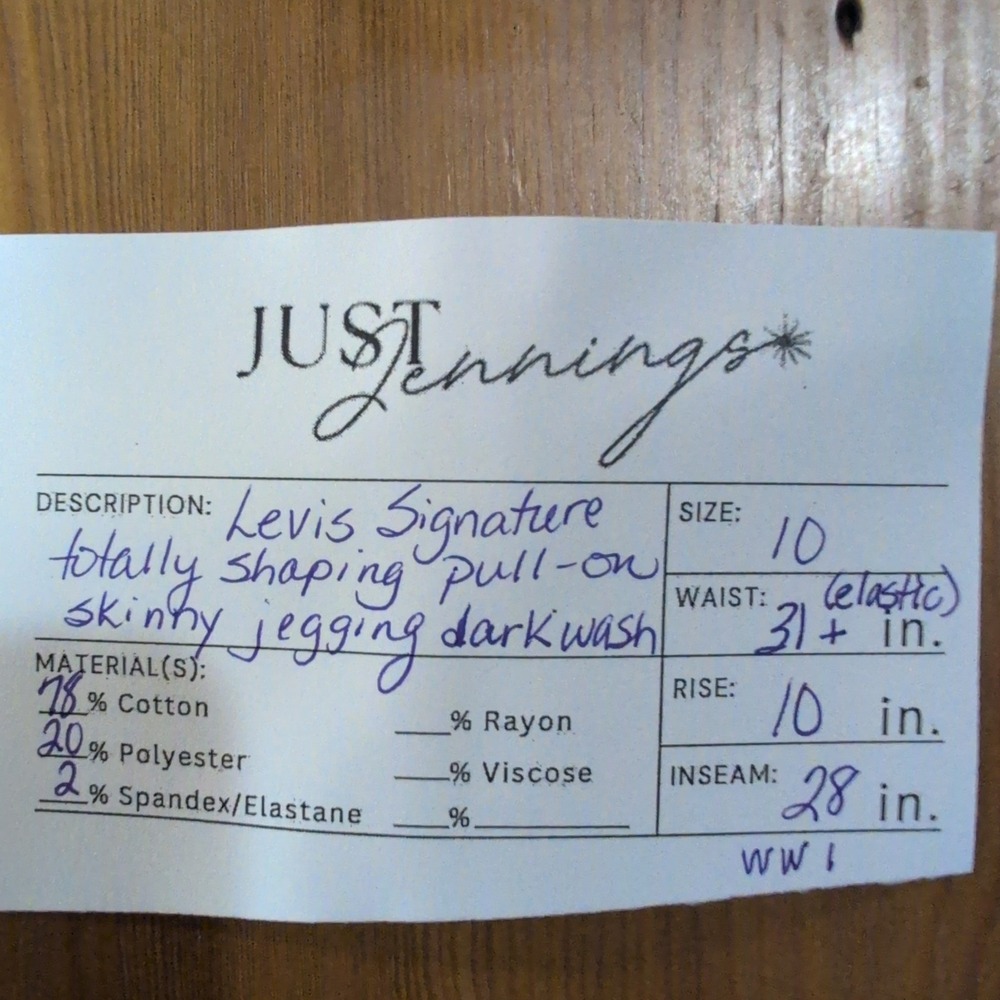 JUST Jennings
DESCRIPTION: Levis Signature
totally shaping pull-on
skinny jegging dark wash
SIZE: 10
WAIST: (elastic)
31+ in.
RISE: 10 in.
INSEAM: 28 in.
MATERIAL(S):
78% Cotton
20% Polyester
2% Spandex/Elastane
___% Rayon
___% Viscose
___%__________
WW 1